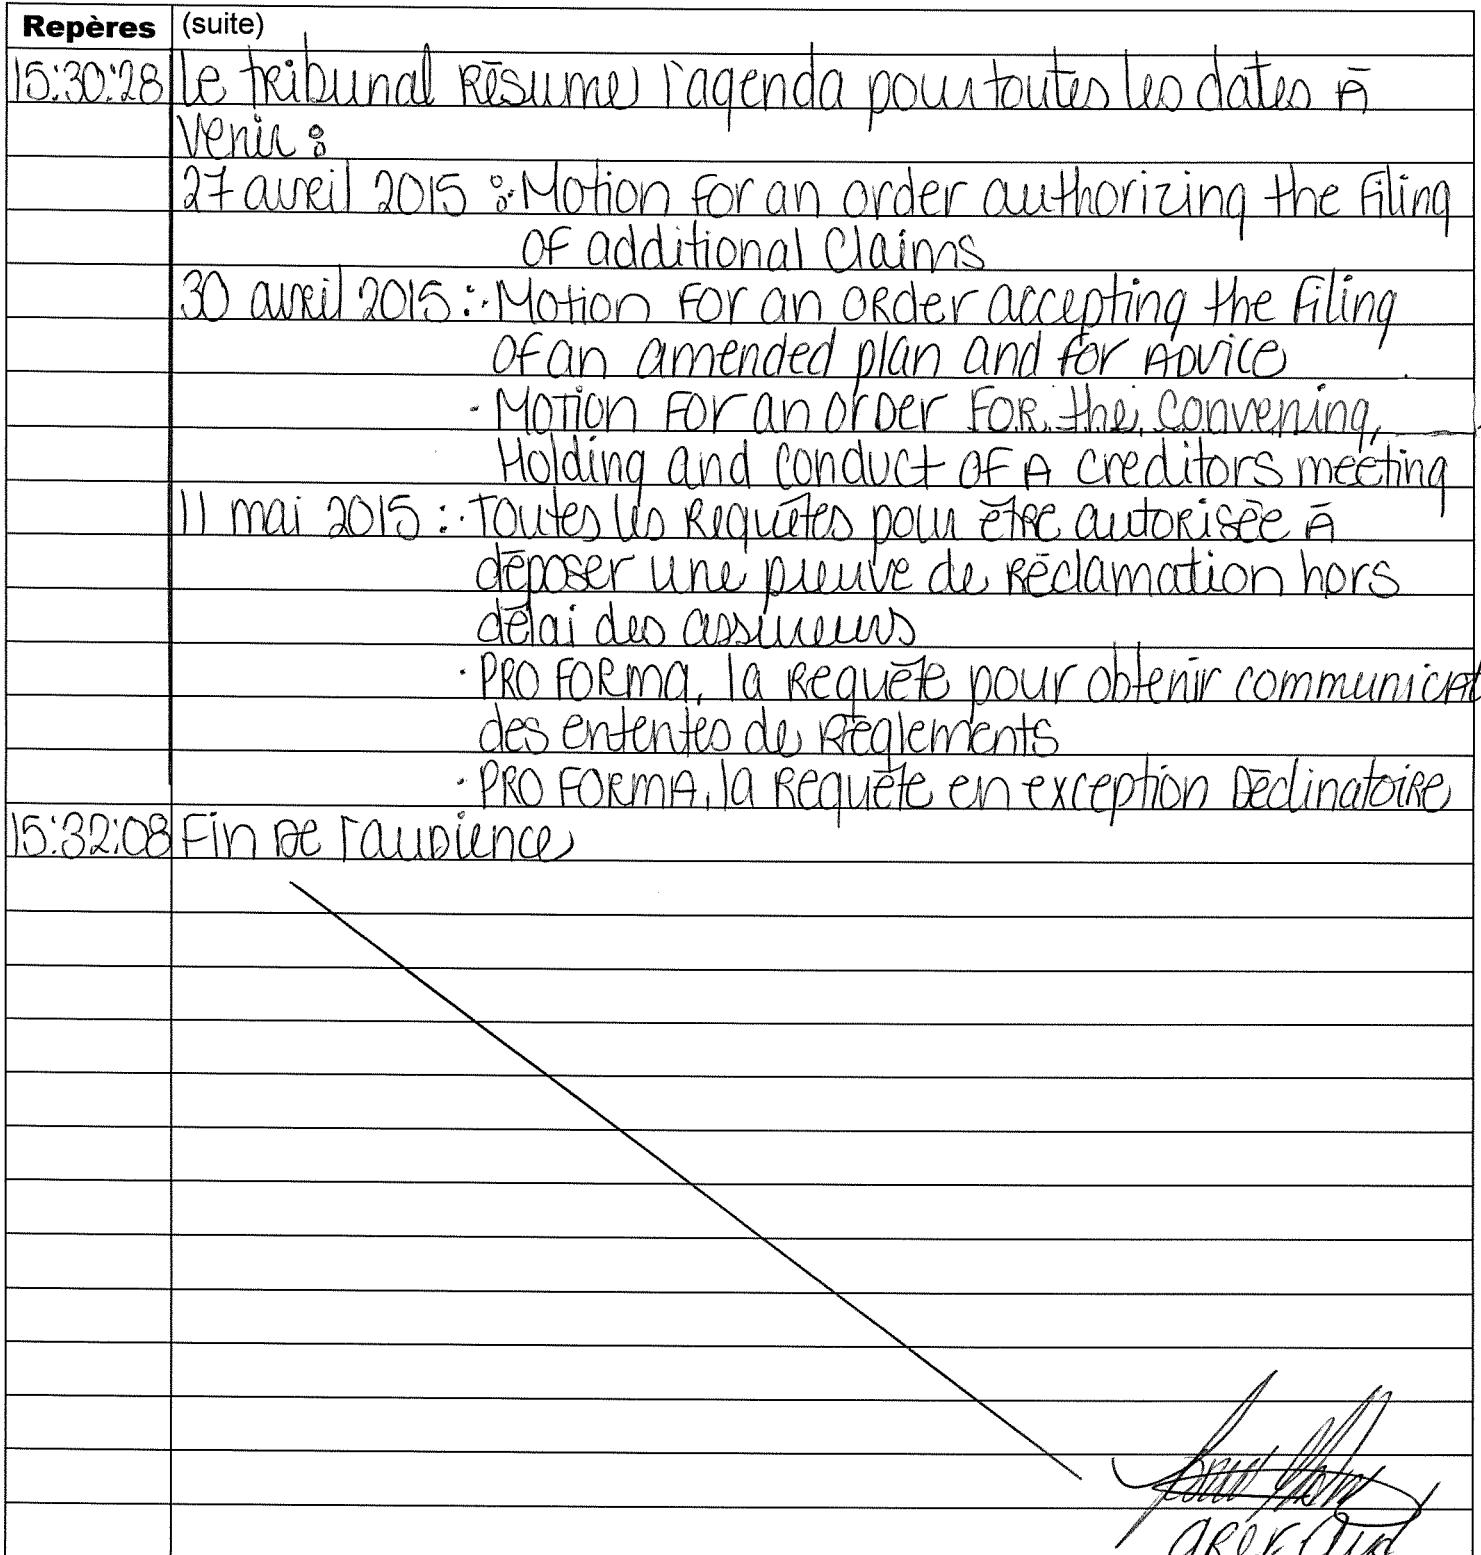 Repères (suite)
15:30:28 Le tribunal résume l'agenda pour toutes les dates à
venir :
27 avril 2015 : · Motion for an order authorizing the filing
of additional claims
30 avril 2015 : · Motion for an order accepting the filing
of an amended plan and for advice
· Motion for an order for the convening,
Holding and conduct of a creditors meeting
11 mai 2015 : · Toutes les requêtes pour être autorisée à
déposer une preuve de réclamation hors
délai des assureurs
· PRO FORMA, la requête pour obtenir communicat
des ententes de règlements
· PRO FORMA, la requête en exception déclinatoire
15:32:08 Fin de l'audience